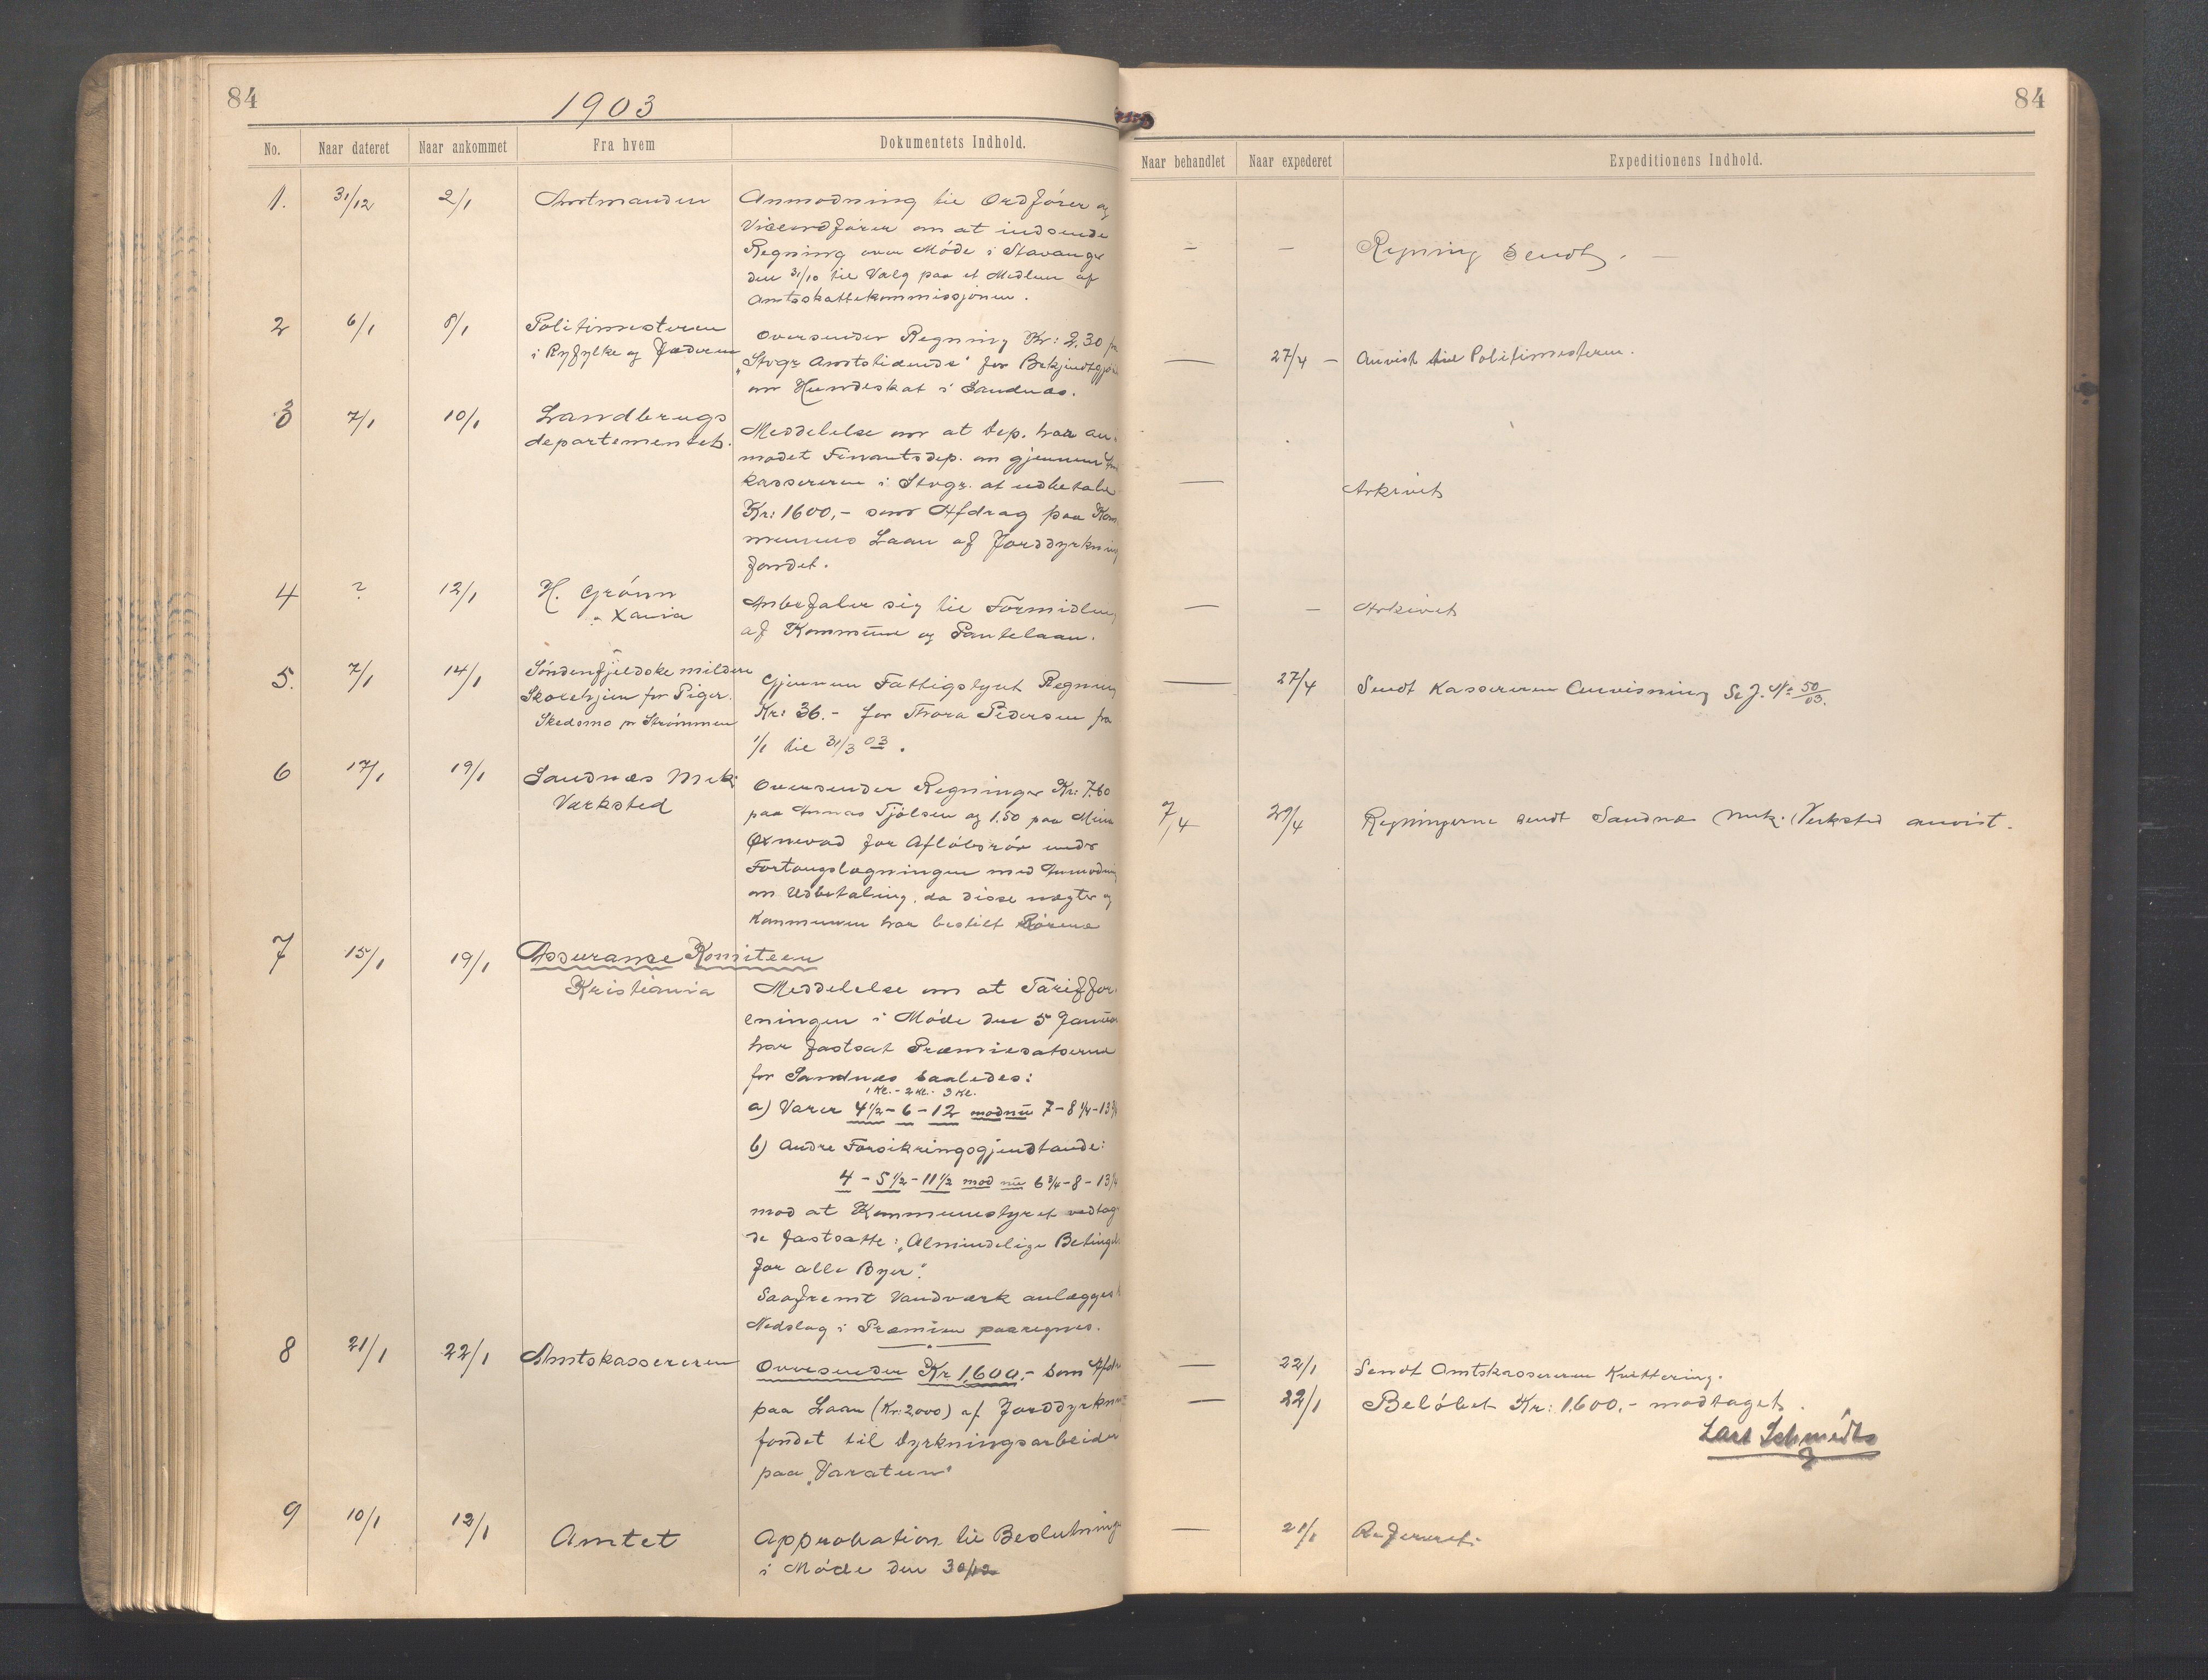 84
1903
No. Naar dateret Naar ankommet Fra hvem Dokumentets Indhold.
1. 31/12 2/1 Amtmanden Anmodning til Ordfører og
Viceordfører om at indsende
Regning over Møde i Stavanger
den 31/10 til Valg paa et Medlem af
Amtsskattekommissjonen.
2 6/1 8/1 Politimesteren
i Ryfylke og Jæderen
Oversender Regning Kr: 2.30 fra
"Stvgr. Amtstidende" for Bekjendtgjør
om Hundeskat i Sandnæs.
3 7/1 10/1 Landbrugs
departementet.
Meddelelse om at Dep. har an-
modet Finantsdep. om gjennem
kassereren i Stvgr. at udbetale
Kr: 1600,- som Afdrag paa Kom
munens Laan af Jorddyrknings
fondet.
4 ? 12/1 H. Grönn
Xania
Anbefaler sig til Formidling
af Kommune og Pantelaan.
5. 7/1 14/1 Søndenfjeldske mildere
Skolehjem for Piger.
Skedsmo pr Strømmen
Gjennem Fattigstyret Regning
Kr: 36.- for Thora Pedersen fra
1/1 til 31/3 03.
6 17/1 19/1 Sandnæs Mek.
Værksted
Oversender Regninger Kr: 7.60
paa Annas Tjølsen og 1.50 paa
Øxnevad for Afløbsrør under
Fortougslægningen med Anmodning
om Udbetaling, da disse nægter og
Kommunen har bestilt Rørene
7 15/1 19/1 Assuranse Komiteen
Kristiania
Meddelelse om at Tariffor-
eningen i Møde den 5 Januar
har fastsat Præmiesatserne
for Sandnæs saaledes:
1 Kl. - 2 Kl. - 3 Kl.
a) Varer 4 1/2 - 6 - 12 mod nu 7 - 8 1/4 - 13 3/4
b) Andre Forsikringsgjendstande:
4 - 5 1/2 - 11 1/2 mod nu 6 3/4 - 8 - 13 1/4
mod at Kommunestyret vedtag
de fastsatte: "Almindelige Betingels
for alle Byer".
Saafremt Vandværk anlægges
Nedslag i Præmien paaregnes.
8 21/1 22/1 Amtskassereren Oversender Kr 1,600.- som Afdr
paa Laan (Kr: 2000) af Jorddyrknings
fondet til Dyrkningsarbeider
paa "Varatun"
9 10/1 12/1 Amtet Approbation til Beslutninger
i Møde den 30/12
84
Naar behandlet Naar expederet Expeditionens Indhold.
- - Regning sendt. -
— 27/4 - Anvist til Politimesteren.
— Arkivet
— - Arkivet
— 27/4 Sendt Kassereren Anvisning Se J. No 50/03.
7/4 29/4 Regningerne sendt Sandnæs Mek. Verksted anvist.
— 22/1 Sendt Amtskassereren Kvittering.
— 22/1 Beløbet Kr: 1,600,- modtaget.
Lars Schmedts
— 21/1 Refereret.